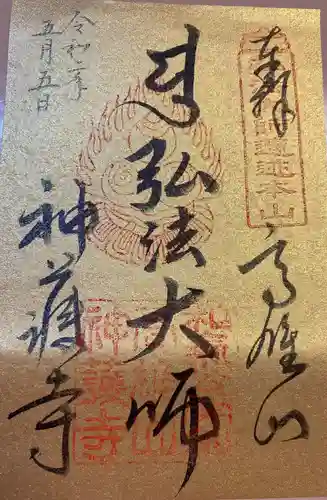 奉拝
師遺迹本山
高雄山
弘法大師
神護寺
令和元年
五月五日
神護寺